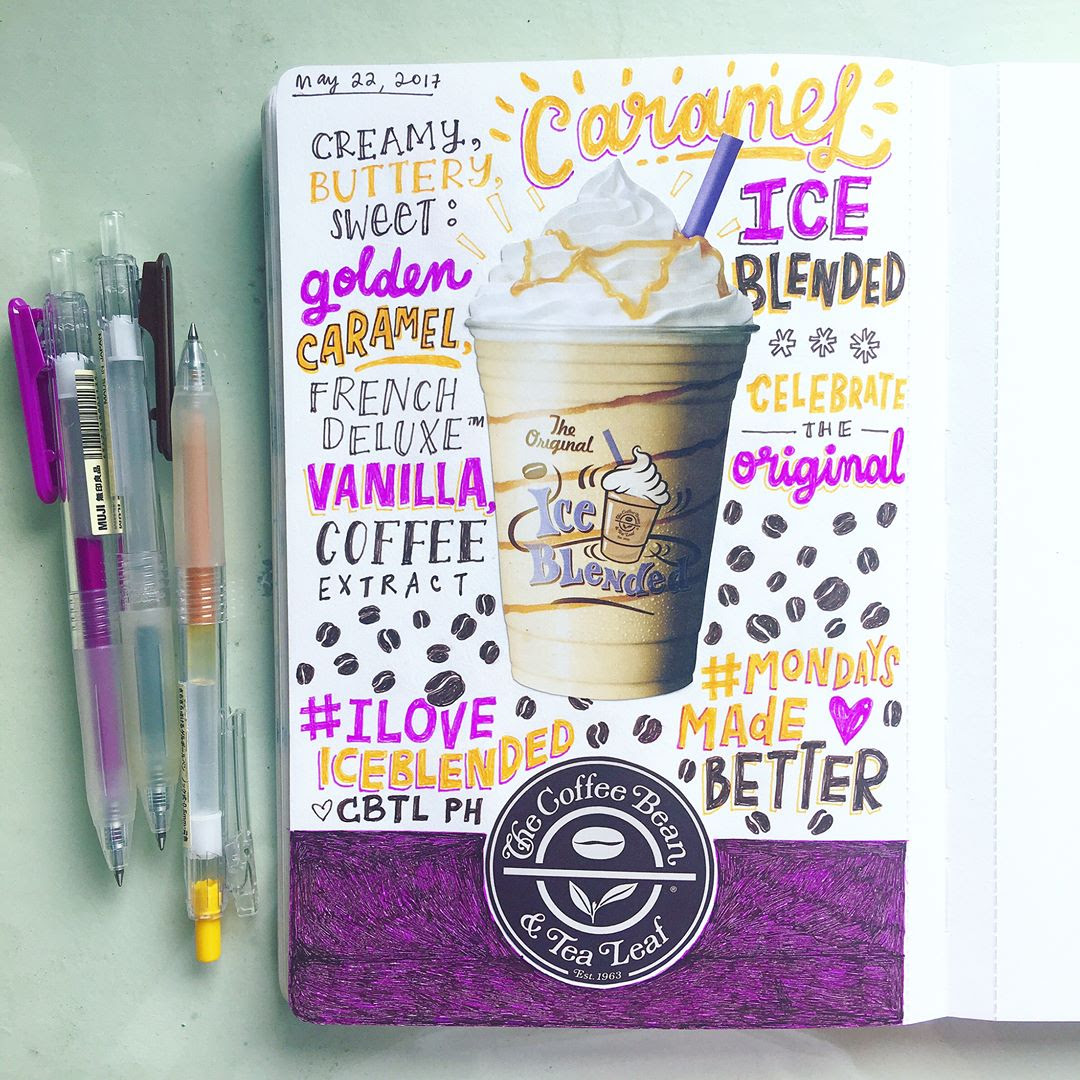 May 22, 2017
CREAMY,
BUTTERY,
SWEET:
golden
CARAMEL,
FRENCH
DELUXE™
VANILLA,
COFFEE
EXTRACT
Caramel
ICE
BLENDED
CELEBRATE
THE
original
The
Original
Ice
BLended
#ILOVE
ICEBLENDED
♡CBTL PH
#MONDAYS
MAdE
BETTER
The Coffee Bean
& Tea Leaf
®
Est. 1963
MUJI 無印良品
MADE IN JAPAN